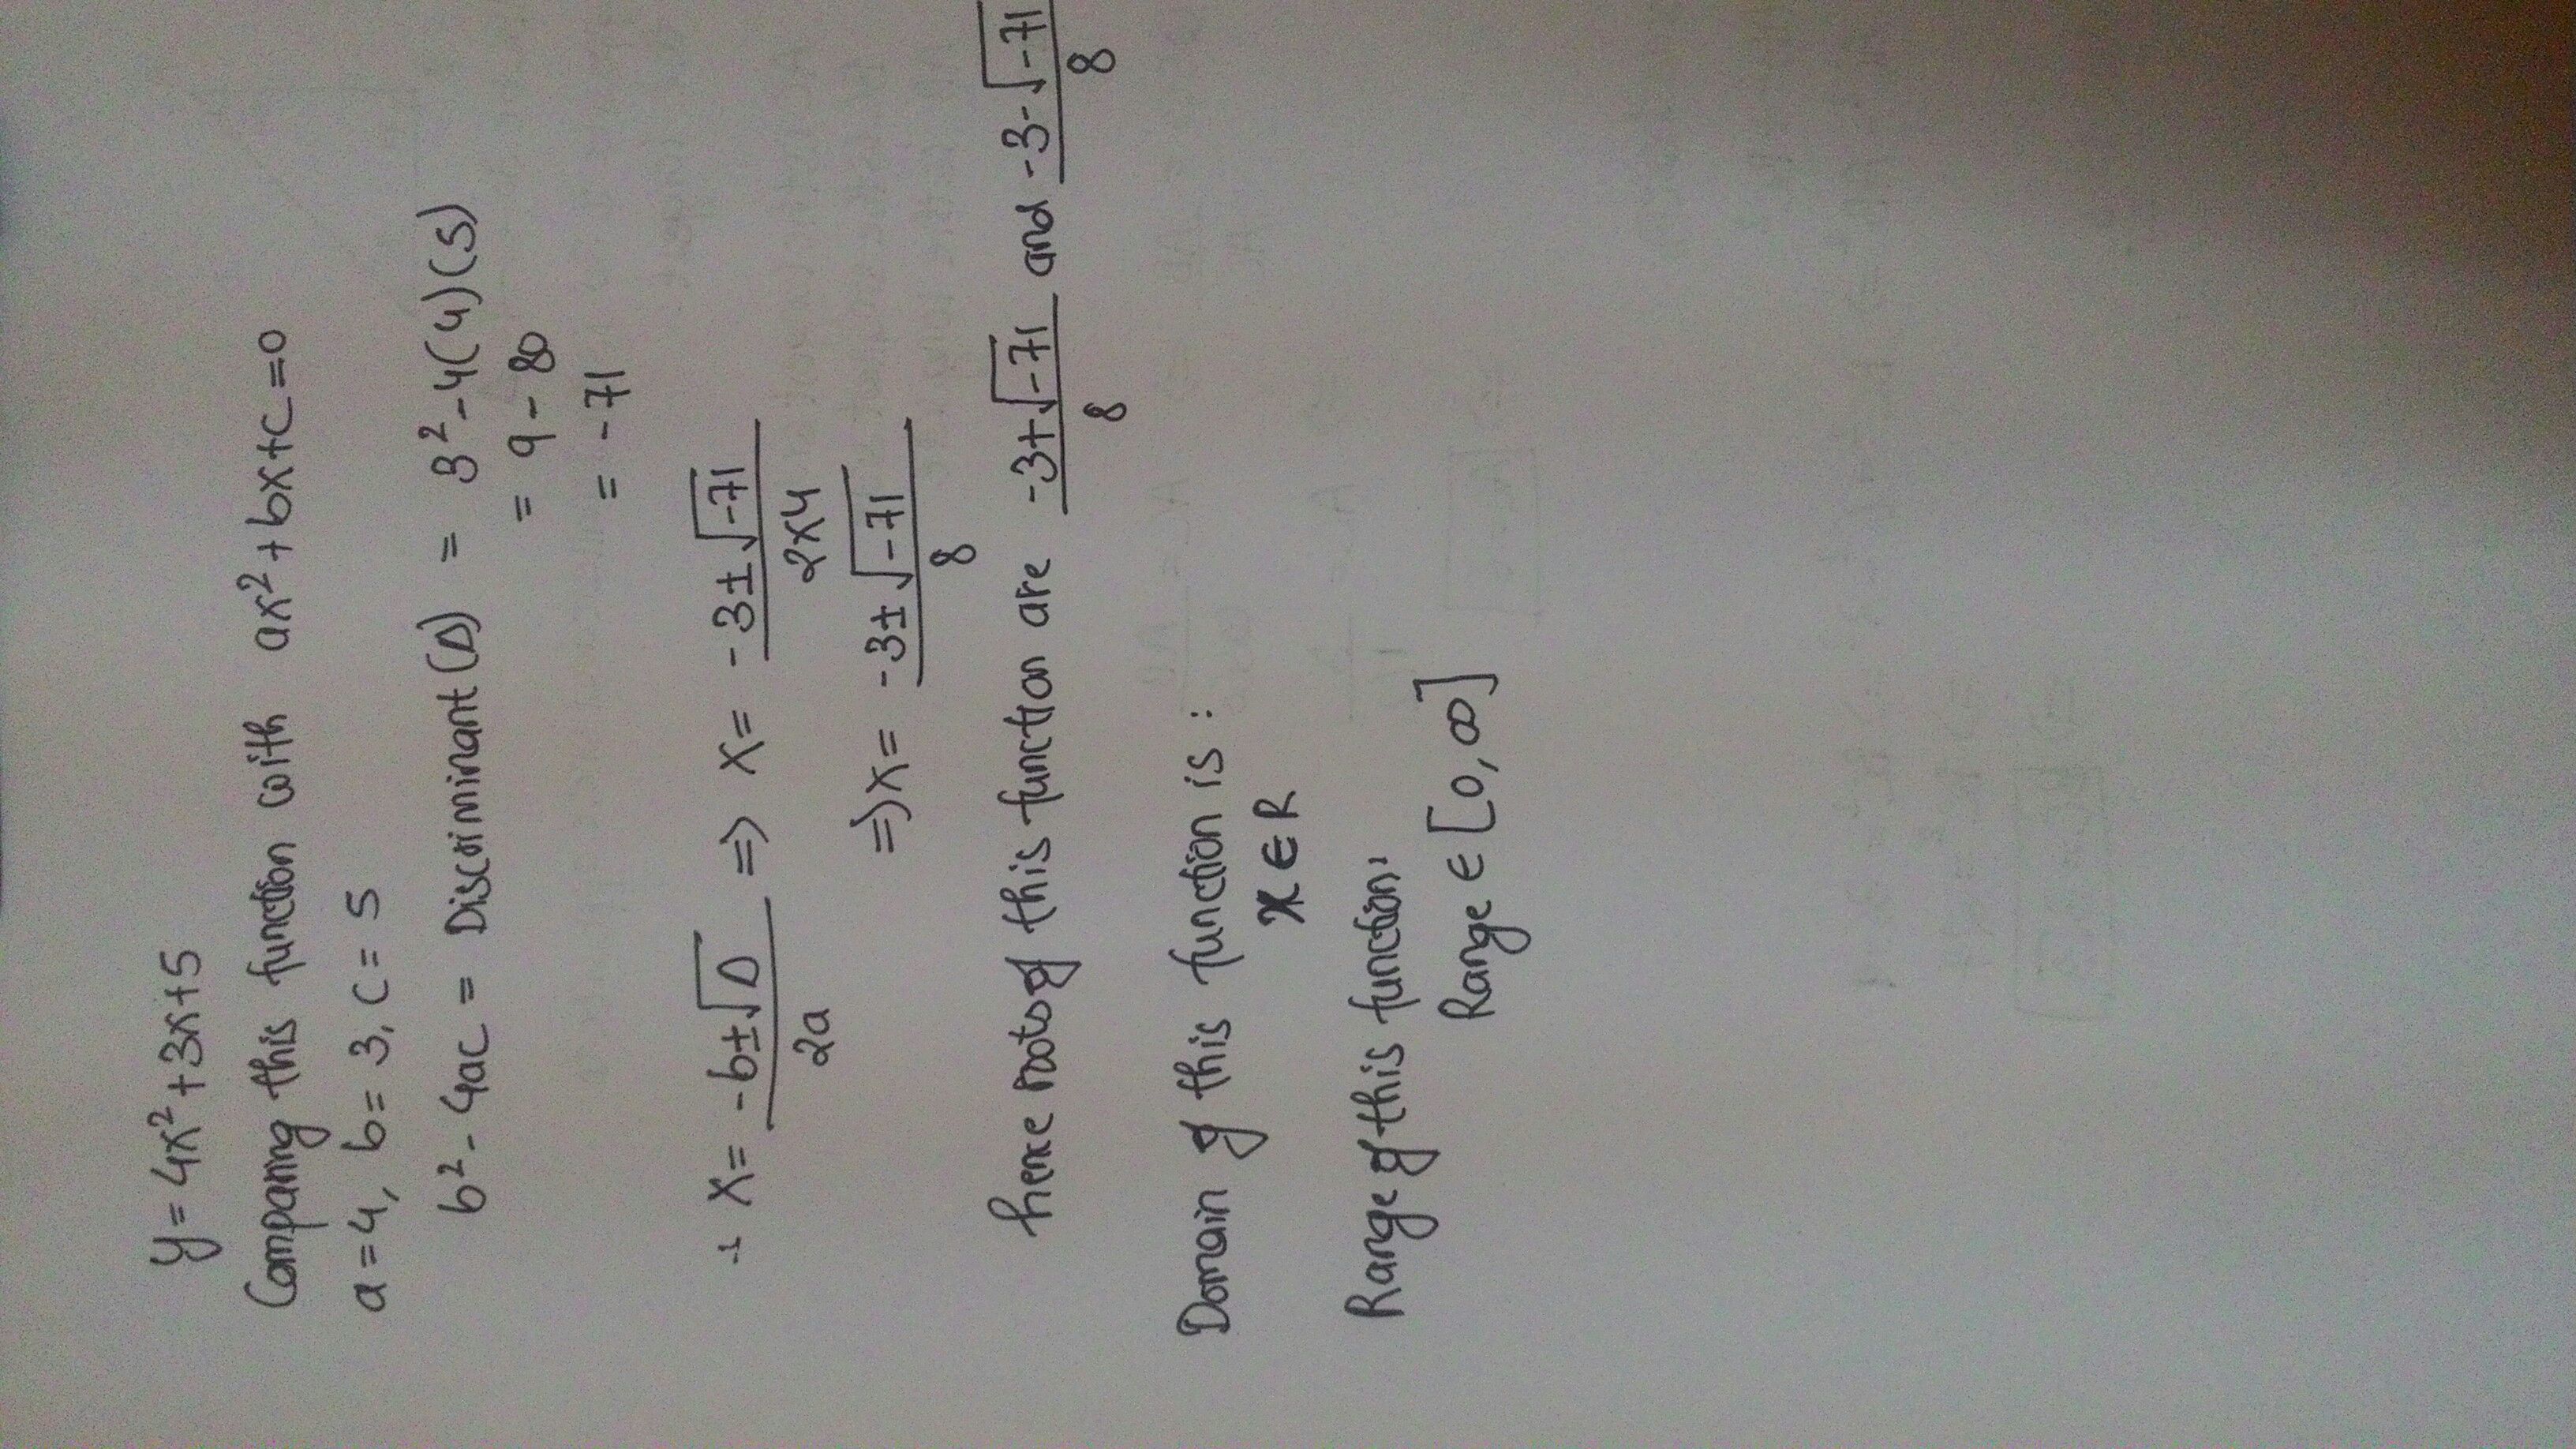 y = 4x² + 3x + 5
Comparing this function with ax² + bx + c = 0
a = 4, b = 3, c = 5
b² - 4ac = Discriminant (D) = 3² - 4(4)(5)
= 9 - 80
= -71
x = (-b ± √D)/2a => x = (-3 ± √-71)/2x4
=> x = (-3 ± √-71)/8
hence roots of this function are (-3 + √-71)/8 and (-3 - √-71)/8
Domain of this function is :
x ∈ R
Range of this function:
Range ∈ [0, ∞]